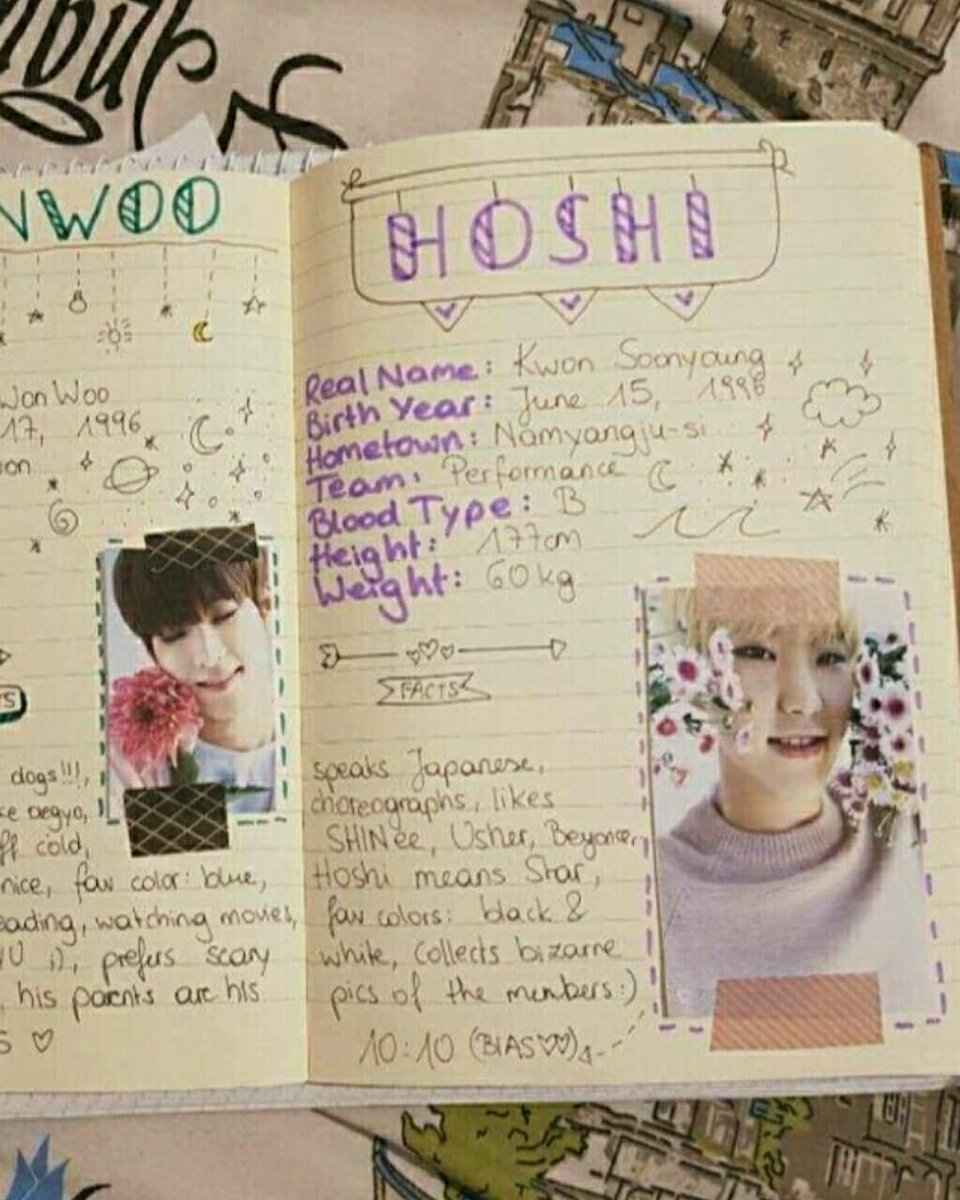 NWOO
WonWoo
17, 1996
on
TS
dogs!!!,
ke aegyo,
ff cold,
nice, fav color: blue,
eading, watching movies,
U ;), prefers scary
, his parents are his
S ♡
HOSHI
Real Name: Kwon Soonyoung
Birth Year: June 15, 1996
Hometown: Namyangju-si
Team: Performance
Blood Type: B
Height: 177cm
Weight: 60kg
FACTS
speaks Japanese,
choreographs, likes
SHINee, Usher, Beyonce,
Hoshi means Star,
fav colors: black &
white, collects bizarre
pics of the members:)
10:10 (BIAS♡♡)